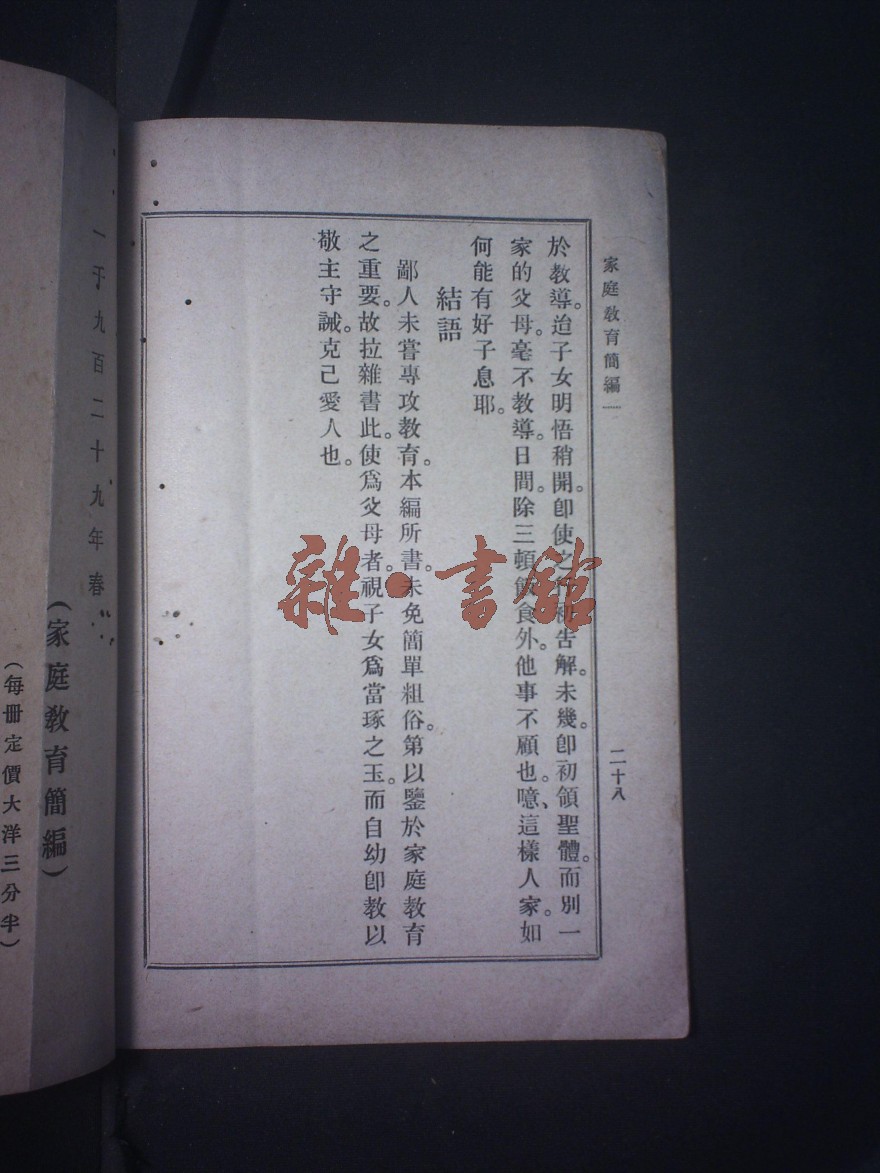 家庭敎育簡編
二十八
於教導。迨子女明悟稍開。卽使之初告解。未幾。卽初領聖體。而別一
家的父母。毫不教導。日間。除三頓飯食外。他事不顧也。噫、這樣人家。如
何能有好子息耶。
結語
鄙人未嘗專攻教育。本編所書。未免簡單粗俗。第以鑒於家庭教育
之重要。故拉雜書此。使爲父母者。視子女爲當琢之玉。而自幼卽教以
敬主守誡。克己愛人也。
雜·書館
一千九百二十九年春
(家庭敎育簡編)
(每册定價大洋三分半)